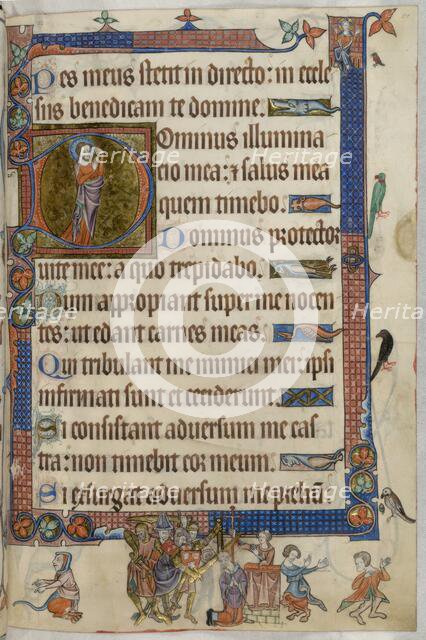 Pes meus stetit in directo: in eccle
siis benedicam te domine.
Dominus illumina
cio mea: et salus mea
quem timebo.
Dominus protector
vite mee: a quo trepidabo.
Dum appropiant super me nocen
tes: ut edant carnes meas.
Qui tribulant me inimici mei: ipsi
infirmati sunt et ceciderunt.
Si consistant adversum me cas
tra: non timebit cor meum.
Si exsurgat adversum me prelium:
Heritage
Heritage
Heritage
Heritage
Heritage
Heritage
Images
Images
Images